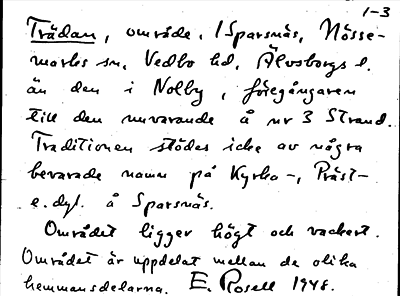 1-3
Trädan, område, 1 Sparsnäs, Nösse-
marks sn, Vedbo hd, Älvsborgs l.
än den i Nolby, föregångaren
till den nuvarande å nr 3 Strand.
Traditionen stödes icke av några
bevarade namn på Kyrko-, Präst-
e.dyl. å Sparsnäs.
Området ligger högt och vackert.
Området är uppdelat mellan de olika
hemmansdelarna. E. Rosell 1948.